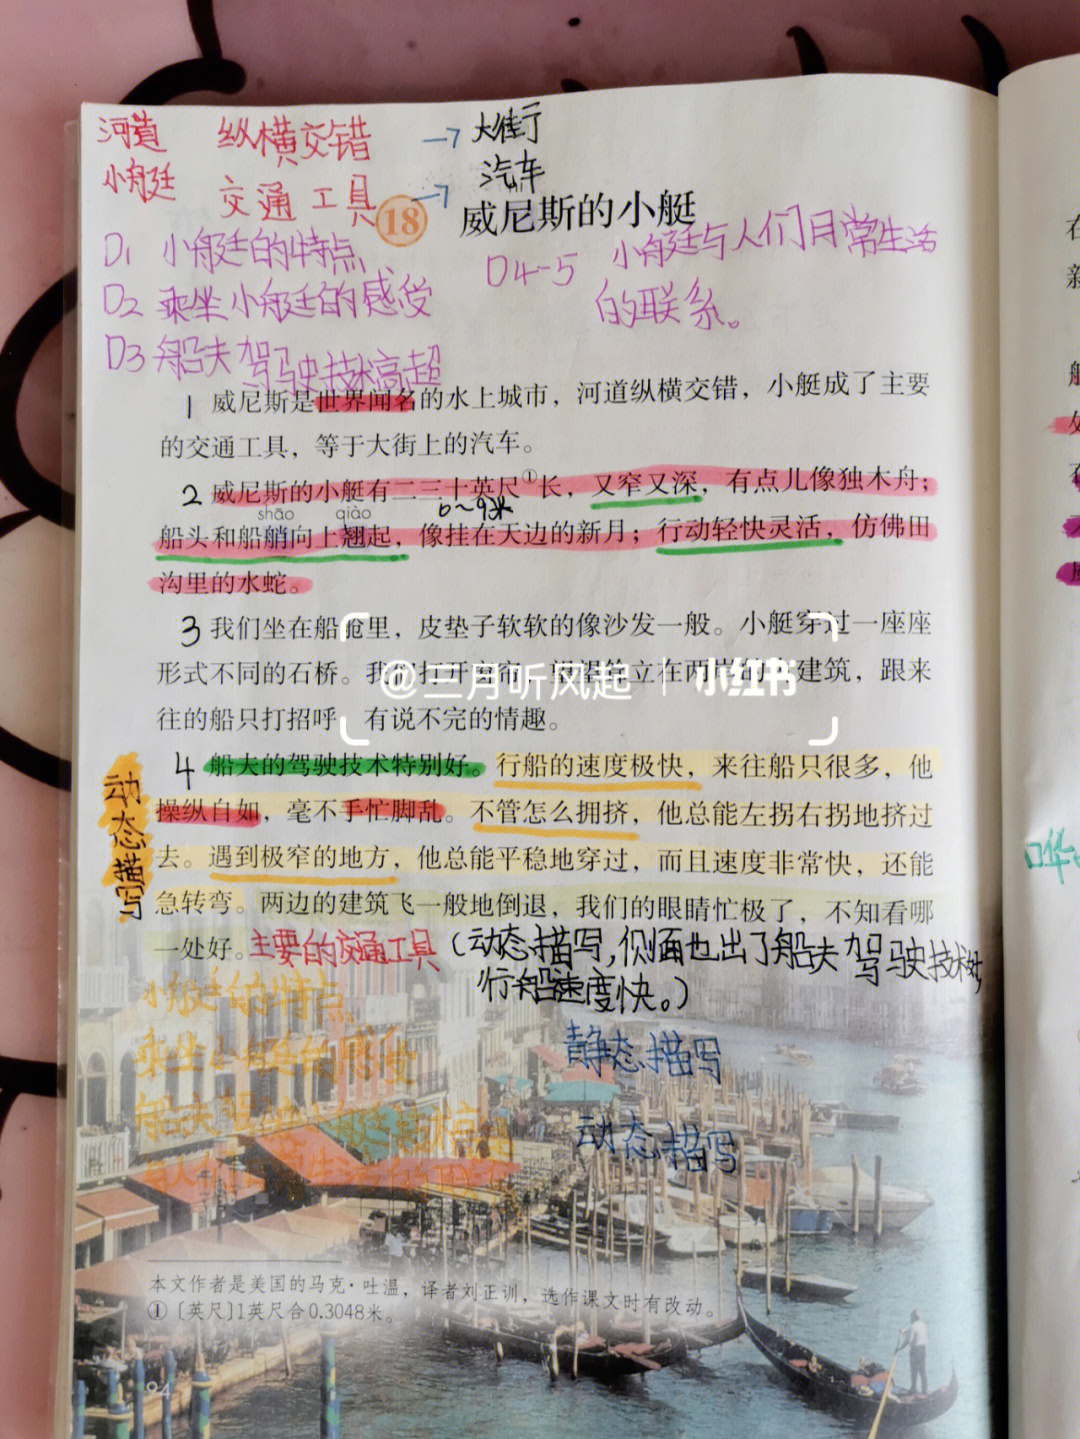 河道 纵横交错 → 大街
小艇 交通工具 → 汽车
18 威尼斯的小艇
D1 小艇的特点
D4-5 小艇与人们日常生活
的联系。
D2 乘坐小艇的感受
D3 船夫驾驶技术高超
1 威尼斯是世界闻名的水上城市，河道纵横交错，小艇成了主要
的交通工具，等于大街上的汽车。
2 威尼斯的小艇有二三十英尺①长，又窄又深，有点儿像独木舟；
shāo qiào 6～9米
船头和船艄向上翘起，像挂在天边的新月；行动轻快灵活，仿佛田
沟里的水蛇。
3 我们坐在船舱里，皮垫子软软的像沙发一般。小艇穿过一座座
形式不同的石桥。我们打开窗帘，望望耸立在两岸的 建筑，跟来
@三月听风起 | 小红书
往的船只打招呼 有说不完的情趣。
4 船夫的驾驶技术特别好。行船的速度极快，来往船只很多，他
动态描写
操纵自如，毫不手忙脚乱。不管怎么拥挤，他总能左拐右拐地挤过
去。遇到极窄的地方，他总能平稳地穿过，而且速度非常快，还能
急转弯。两边的建筑飞一般地倒退，我们的眼睛忙极了，不知看哪
一处好。主要的交通工具（动态描写，侧面 出了船夫驾驶技术
行船速度快。）
小艇的特点
静态描写
乘坐小艇的感受
船夫
动态描写
本文作者是美国的马克·吐温，译者刘正训，选作课文时有改动。
① [英尺]1英尺合0.3048米。
94